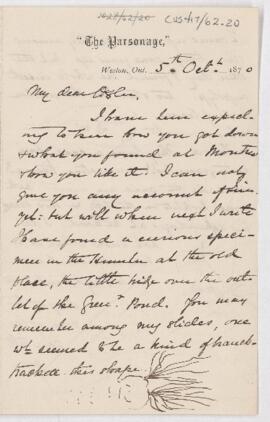 CUS417/62.20
"The Parsonage,"
Weston, Ont. 5th Octr. 1870
My dear Osler,
I have been expecting
to hear how you got down
& what you found at Montreal
& how you like it. I can not
give you any account of
yet: but will when next I write
I have found a curious speci-
men in the at the old
place, the little bridge over the out-
let of the Green Pond. You may
remember among my slides, one
wh. seemed to be a kind of branch
this shape.